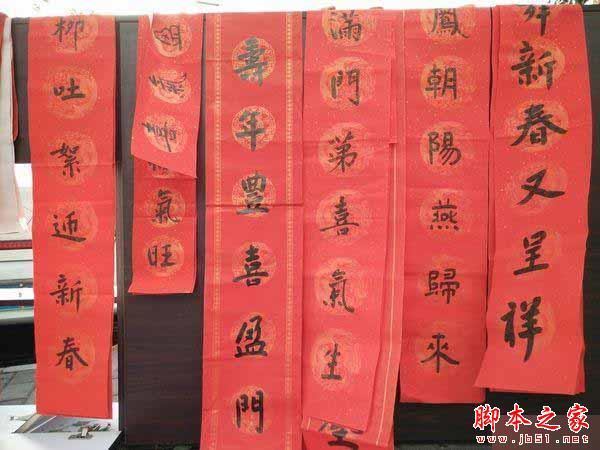 柳吐絮迎新春
氣旺
壽年豐喜盈門
滿門第喜氣生
鳳朝陽燕歸來
新春又呈祥
脚本之家
www.jb51.net